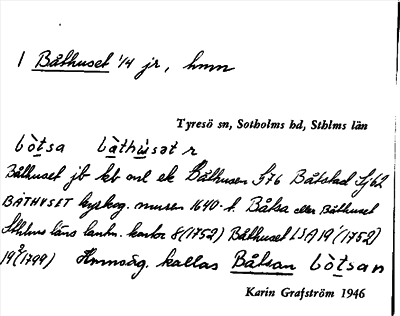 1 Båthuset 1/4 jr, hmn
Tyresö sn, Sotholms hd, Sthlms län
bòtsa bàthùsət n
Båthuset jb kb onl ek Båthusen S76 Båtstad Sj62
BÅTHUSET kyrkog. mursen 1640-t. Båtsa eller Båthuset
Sthlms läns lantm. kontor 8 (1752) Båthuset LSA 19 (1752)
19 (1799) Hemsäg. kallas Båtsan bòtsan
Karin Grafström 1946